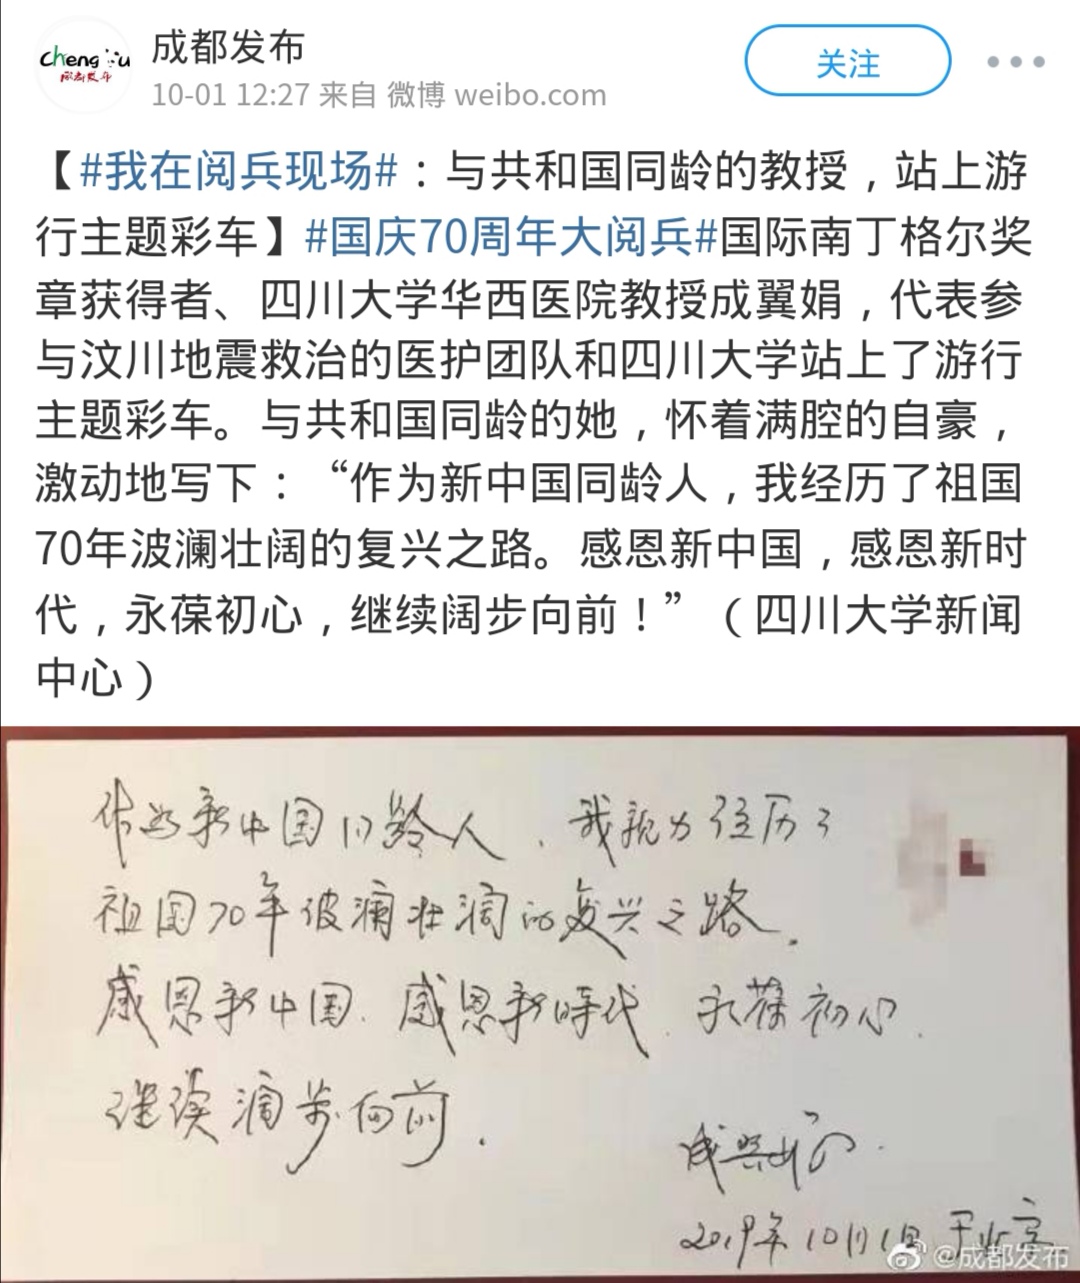 Cheng Du
成都发布
成都发布
10-01 12:27 来自 微博 weibo.com
关注
【#我在阅兵现场#：与共和国同龄的教授，站上游
行主题彩车】#国庆70周年大阅兵#国际南丁格尔奖
章获得者、四川大学华西医院教授成翼娟，代表参
与汶川地震救治的医护团队和四川大学站上了游行
主题彩车。与共和国同龄的她，怀着满腔的自豪，
激动地写下：“作为新中国同龄人，我经历了祖国
70年波澜壮阔的复兴之路。感恩新中国，感恩新时
代，永葆初心，继续阔步向前！”（四川大学新闻
中心）
作为新中国同龄人，我亲力经历了
祖国70年波澜壮阔的复兴之路。
感恩新中国，感恩新時代，永葆初心，
继续阔步向前。
成翼娟
2019年10月1日于北京
@成都发布